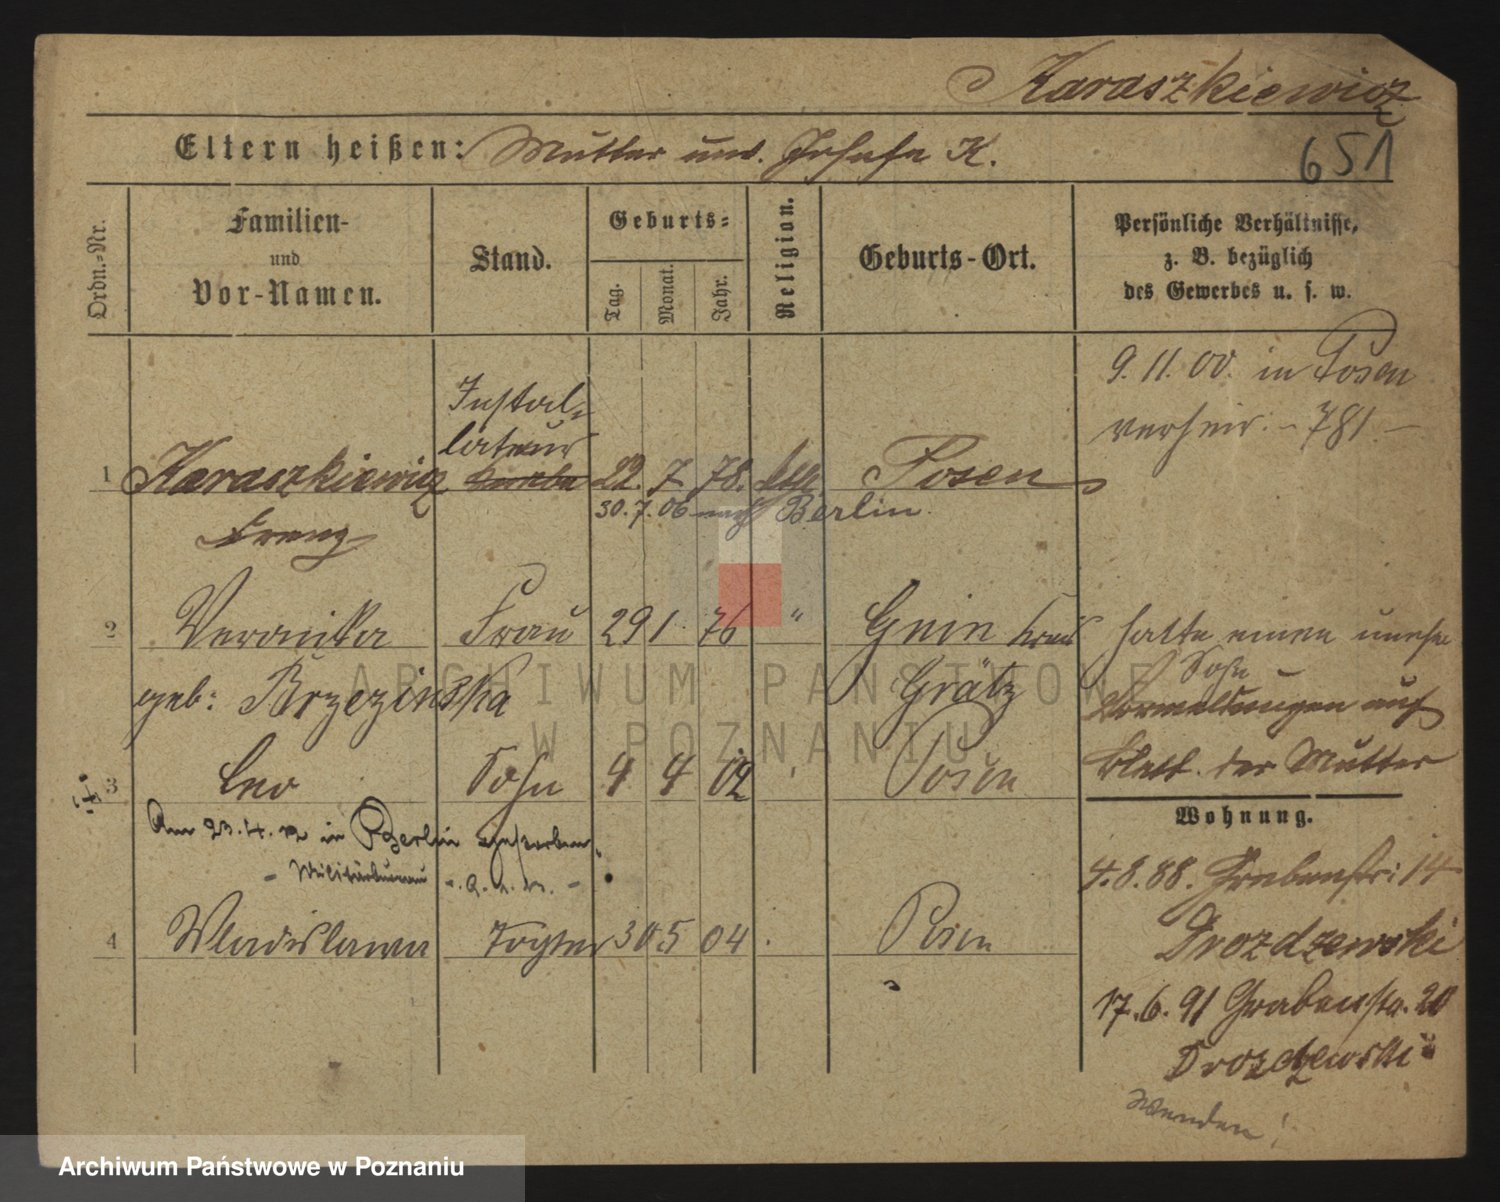 Karaszkiewicz
651
Eltern heißen: Mutter unv. Josefa K.
Ordn.-Nr.
Familien-
und
Vor-Namen.
Stand.
Geburts-
Tag.
Monat.
Jahr.
Religion.
Geburts-Ort.
Persönliche Verhältnisse,
z. B. bezüglich
des Gewerbes u. s. w.
9. 11. 00. in Posen
verheir. - 781. -
Instal-
lateur
1 Karaszkiewicz 22. 7 78. kth Posen
30. 7. 06 nach Berlin.
Franz
2 Veronika Frau 29 1. 76 " Gnin Kreis
hatte einen unehe
Sohn
geb: Brzezinska Grätz
Vormeldungen auf
Blatt der Mutter
3 Leo Sohn 4 4 02 Posen
Am 23. 4. 12 in Berlin gestorben.
- Militärbureau -
4 Wladislawa Tochter 30 5 04 Posen
Wohnung.
4. 8. 88. Grabenstr: 14
Drozdzewski
17. 6. 91 Grabenstr. 20
Drozdzewski
Wenden!
ARCHIWUM PAŃSTWOWE
W POZNANIU
Archiwum Państwowe w Poznaniu